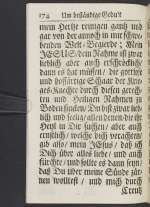 174 Um beständige Gedult
mein Hertze reinigen gantz und
gar von der annoch in mir schwe-
benden Welt-Begierde; Mein
JESUS, dein Nahme ist zwar
lieblich aber auch erschröcklich
dann es hat müssen, der gottlose
und hoffärtige Schaar der Krie-
ges-Knechte durch diesen gerech-
ten und Heiligen Nahmen zu
Boden sincken, Du bist zwar lieb-
lich und seelig / allen denen die ihr
Heyl in Dir suchen / aber auch
ernstlich, welche dich verachten;
gib also / mein JEsus / daß ich
Dich über alles liebe / und auch
fürchte / und sollte es dann seyn
daß Du über meine Sünde zür-
nen wolltest / und mich durch
Creutz